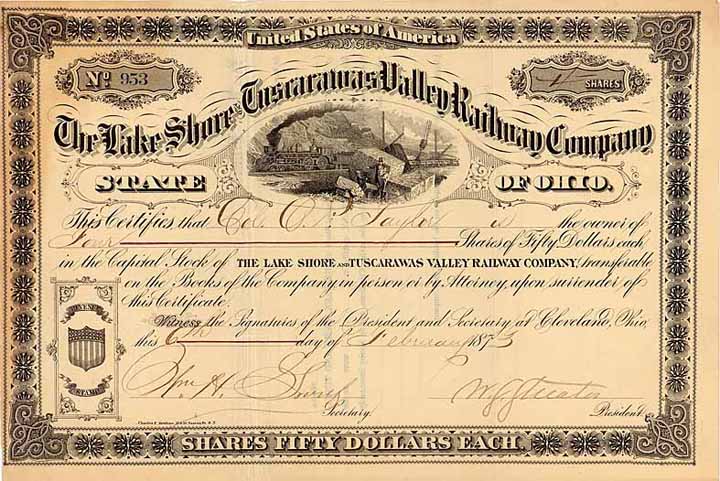 United States of America
No 953
4 SHARES
The Lake Shore and Tuscarawas Valley Railway Company
STATE OF OHIO.
This Certifies that Col. C. P. Taylor is the owner of
Four Shares of Fifty Dollars each,
in the Capital Stock of THE LAKE SHORE AND TUSCARAWAS VALLEY RAILWAY COMPANY, transferable
on the Books of the Company in person or by Attorney, upon surrender of
this Certificate.
Witness the Signatures of the President and Secretary at Cleveland, Ohio,
this 6th day of February 1873
REVENUE
STAMP
Wm. H.
Secretary.
President.
SHARES FIFTY DOLLARS EACH.